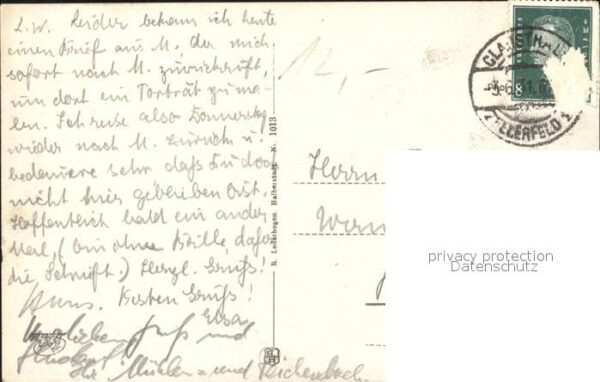 L. W. Leider bekam ich heute
einen Brief aus M. der mich
sofort nach M. zurückruft,
um dort ein Porträt zu ma-
len. Ich reise also Donnerstag
wieder nach M. zurück u.
bedauere sehr, dass Du doch
nicht hier geblieben bist.
Hoffentlich bald ein ander
Mal, (bin ohne Brille, daher
die Schrift.) Herzl. Gruß!
Hans. Besten Gruß!
Elsa
Gruß und
Mühler und Reichenbach
12,-
R. Lederbogen, Halberstadt Nr. 1013
Herrn
8
CLAUSTHAL
ZELLERFELD 1
privacy protection
Datenschutz